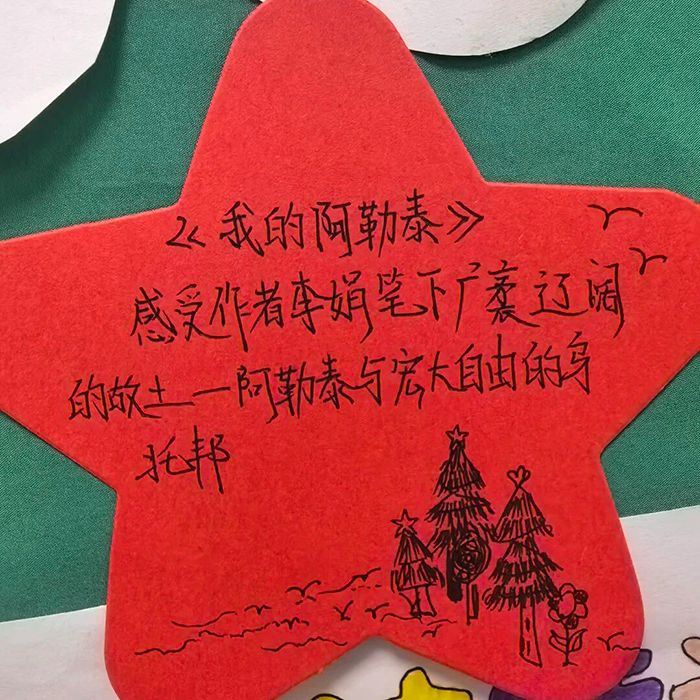 《我的阿勒泰》
感受作者李娟笔下广袤辽阔
的故土—阿勒泰与宏大自由的乌
托邦